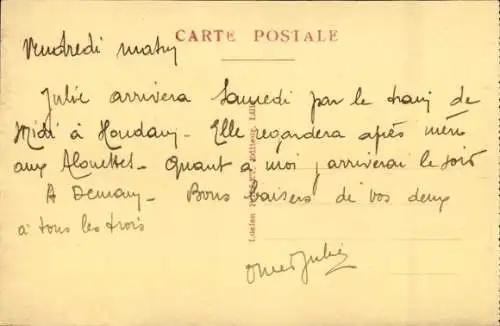 CARTE POSTALE
Vendredi matin
Julie arrivera Samedi par le train de
Midi à Houdain - Elle regardera après mémé
aux Alouettes - Quant à moi j'arriverai le soir
A Demain - Bons baisers de vos deux
à tous les trois
Lucien Editeur, Lille